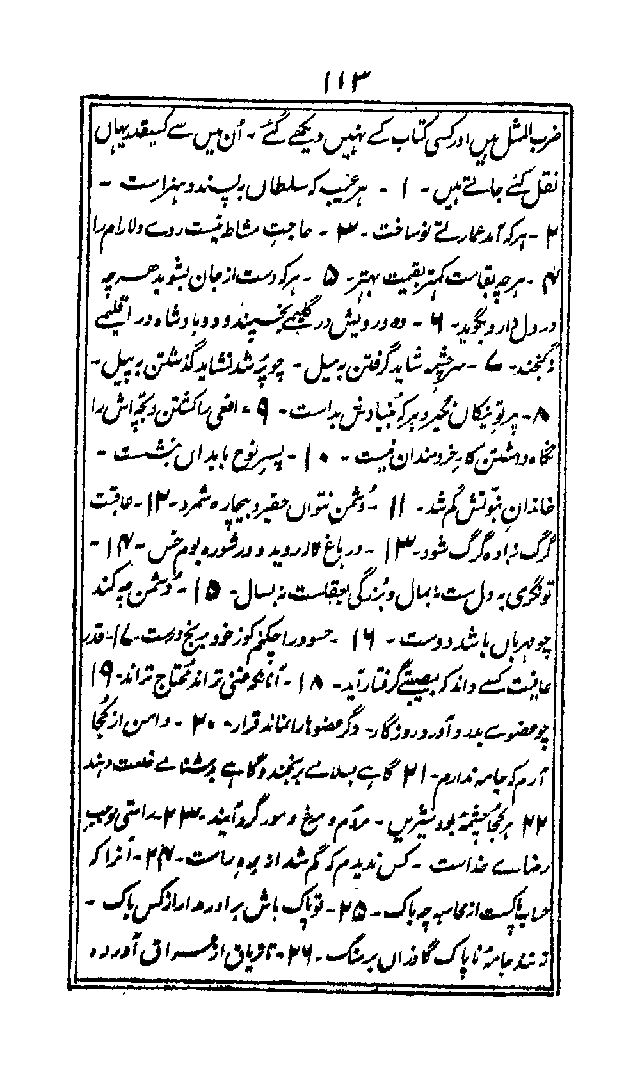 ۱۱۳
ضرب المثل ہیں اور کسی کتاب کے نہیں دیکھے گئے ۔ اُن میں سے کسیقدر یہاں
نقل کئے جاتے ہیں ۔ ۱ ۔ ہر عیب کہ سلطاں بہ پسندد ہنر است ۔
۲ ۔ ہر کہ آمد عمارتے نو ساخت ۔ ۳ ۔ حاجتِ مشاطہ نیست روے دلارام را
۴ ۔ ہر چہ بقامت کہتر بقیمت بہتر ۔ ۵ ۔ ہر کہ دست از جان بشوید ہرچہ
در دل دارد بگوید ۔ ۶ ۔ دہ درویش در گلیمے بخسپند و دو بادشاہ در اقلیمے
نگنجند ۔ ۷ ۔ سرِ چشمہ شاید گرفتن بہ میل ۔ چو پُر شد نشاید گذشتن بہ پیل ۔
۸ ۔ پرتو نیکاں نگیرد ہر کہ بنیادش بد است ۔ ۹ ۔ افعی را کشتن و بچہ اش را
نگاہ داشتن کار خردمنداں نیست ۔ ۱۰ ۔ پسرِ نوح با بداں بنشست ۔
خاندانِ نبوتش گم شد ۔ ۱۱ ۔ دُشمن نتواں حقیر و بیچارہ شمرد ۔ ۱۲ ۔ عاقبت
گرگ زادہ گرگ شود ۔ ۱۳ ۔ در باغ لالہ روید و در شورہ بوم خس ۔ ۱۴ ۔
تونگری بہ دل ست نہ بمال و بزرگی بعقلست نہ بسال ۔ ۱۵ ۔ دُشمن چہ کند
چو مہرباں باشد دوست ۔ ۱۶ ۔ حسود را چکنم کو ز خود برنج درست ۔ ۱۷ ۔ قدرِ
عافیت کسے داند کہ بمصیبتے گرفتار آید ۔ ۱۸ ۔ آنانکہ غنی تر اند محتاج تر اند ۔ ۱۹
چو عضوے بدرد آورد روزگار ۔ دگر عضوہا را نماند قرار ۔ ۲۰ ۔ دامن از کجا
آرم کہ جامہ ندارم ۔ ۲۱ گاہے بسلامے برنجند و گاہے بدشنامے خلعت دہند
۲۲ ہر کجا چشمۂ بود شیریں ۔ مردم و مرغ و مور گرد آیند ۔ ۲۳ ۔ راستی موجبِ
رضاے خداست ۔ کس ندیدم کہ گم شد از رہ راست ۔ ۲۴ ۔ آنرا کہ
حساب پاکست از محاسبہ چہ باک ۔ ۲۵ ۔ تو پاک باش برادر و مدار از کس باک ۔
زنند جامۂ ناپاک گاذراں بر سنگ ۔ ۲۶ ۔ تا تریاق از عراق آوردہ